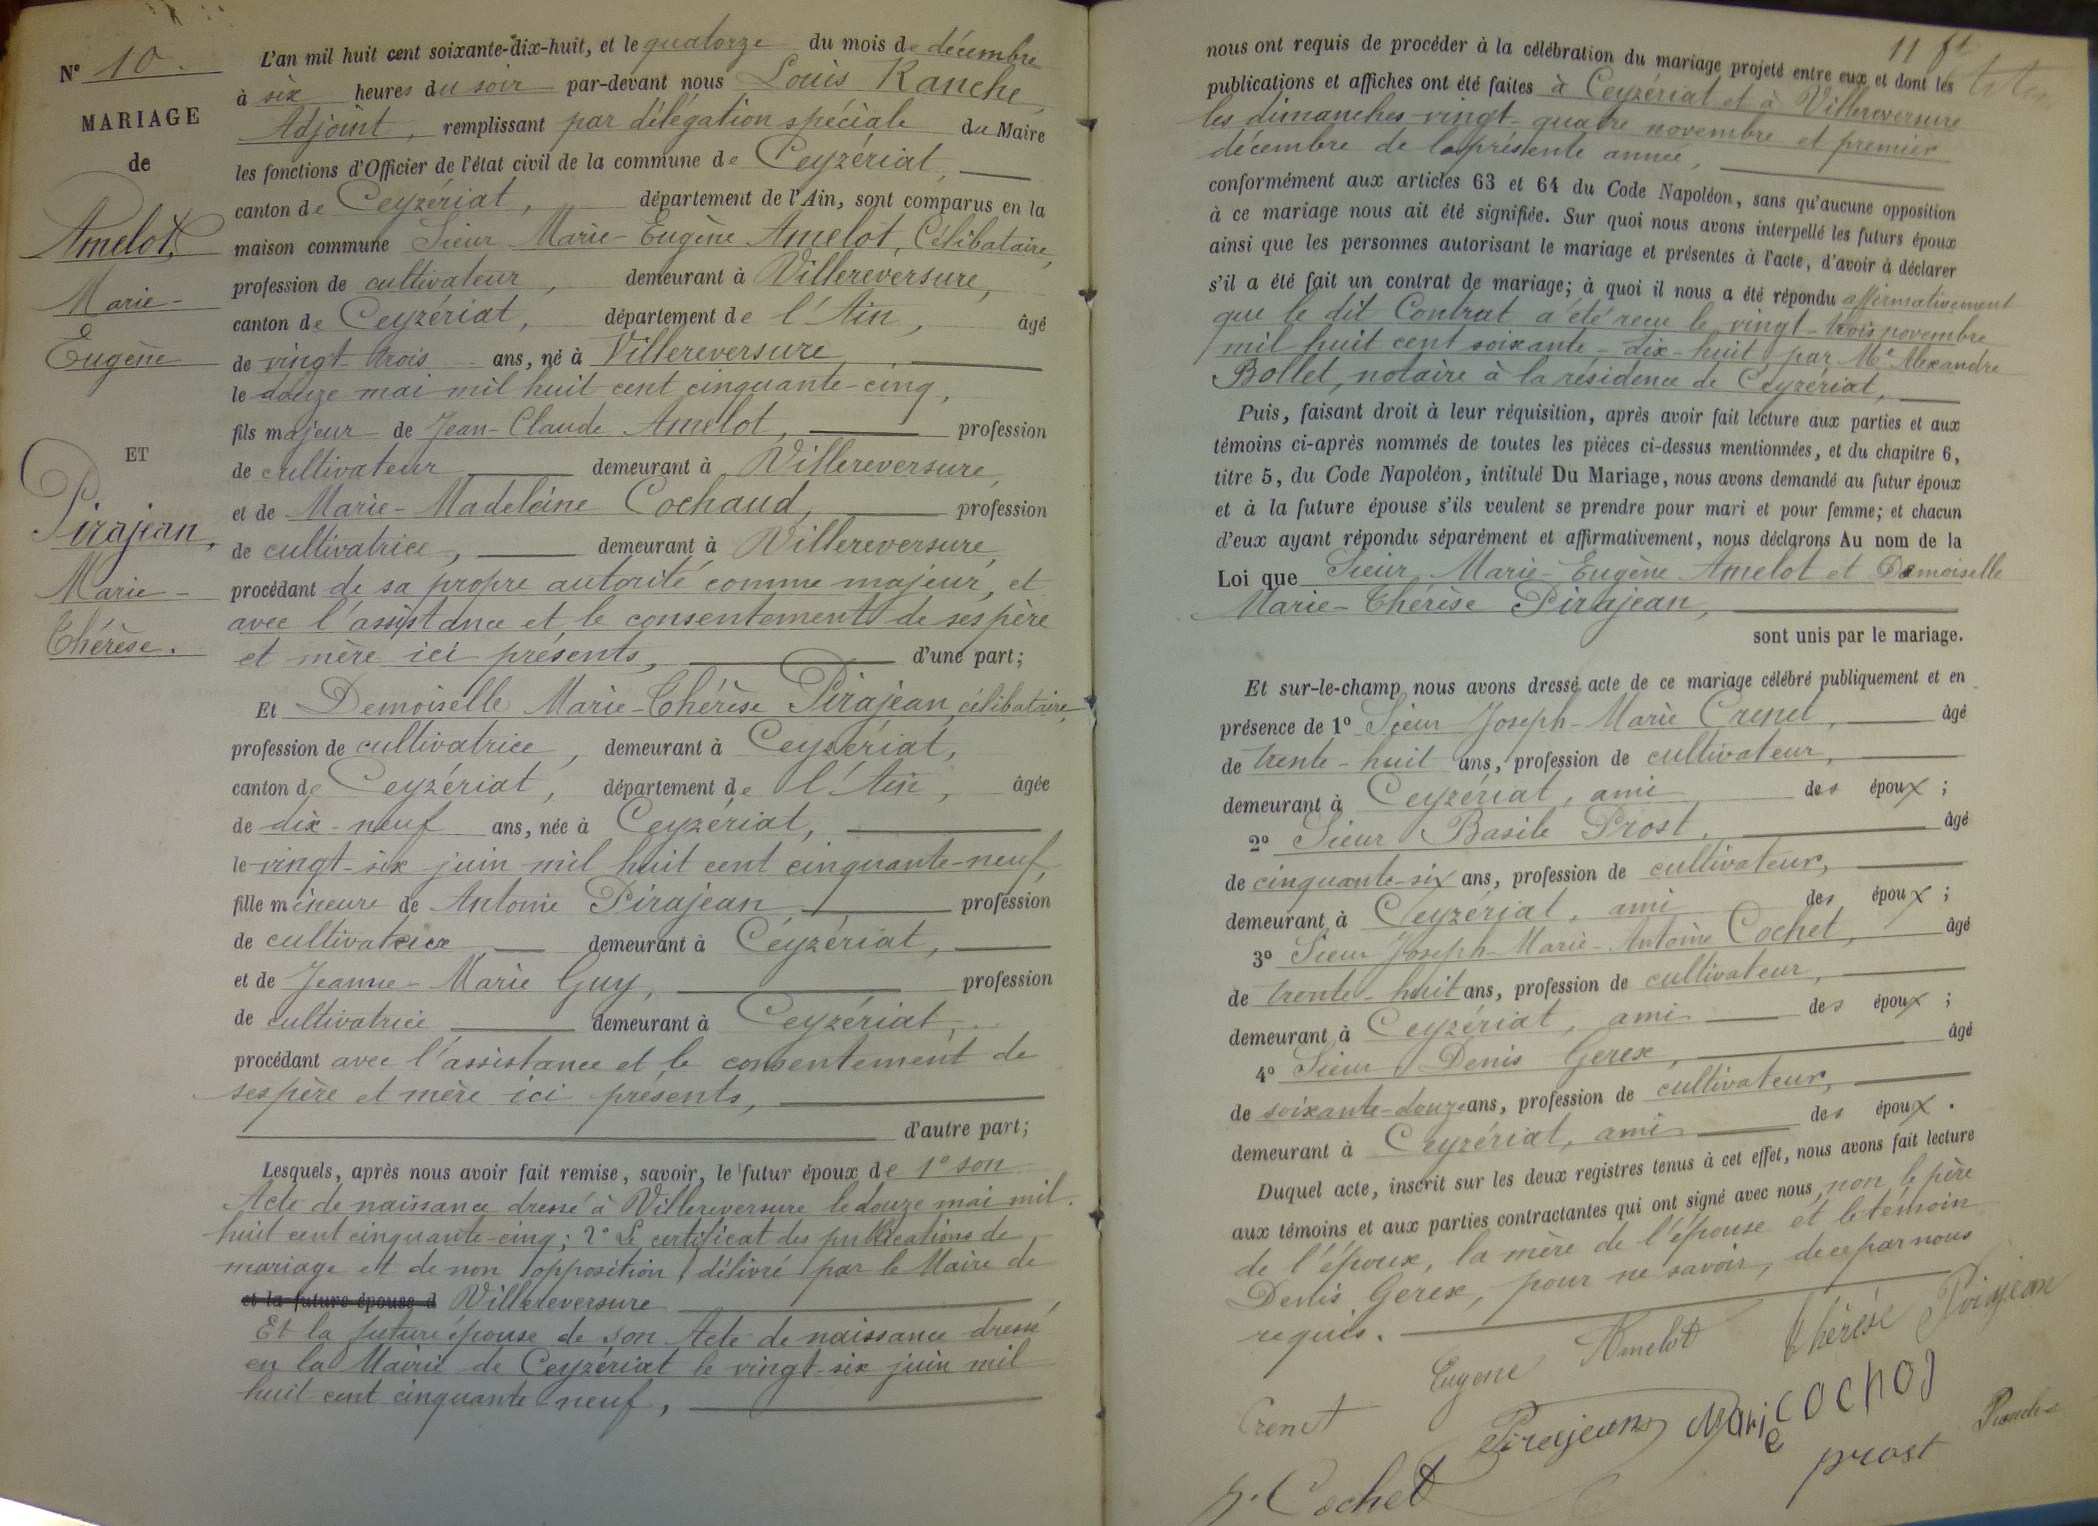 N° 10.
MARIAGE
de
Amelot,
Marie-
Eugène
ET
Pirajean,
Marie-
Thérèse.
L'an mil huit cent soixante-dix-huit, et le quatorze du mois de décembre
à six heures du soir par-devant nous Louis Ranche,
Adjoint, remplissant par délégation spéciale du Maire
les fonctions d'Officier de l'état civil de la commune de Ceyzériat,
canton de Ceyzériat, département de l'Ain, sont comparus en la
maison commune Sieur Marie-Eugène Amelot, Célibataire,
profession de cultivateur, demeurant à Villereversure,
canton de Ceyzériat, département de l'Ain, âgé
de vingt-trois ans, né à Villereversure
le douze mai mil huit cent cinquante-cinq,
fils majeur de Jean-Claude Amelot, profession
de cultivateur demeurant à Villereversure,
et de Marie-Madeleine Cochaud, profession
de cultivatrice, demeurant à Villereversure,
procédant de sa propre autorité comme majeur, et
avec l'assistance et le consentement de ses père
et mère ici présents, d'une part;
Et Demoiselle Marie-Thérèse Pirajean, célibataire,
profession de cultivatrice, demeurant à Ceyzériat,
canton de Ceyzériat, département de l'Ain, âgée
de dix-neuf ans, née à Ceyzériat,
le vingt-six juin mil huit cent cinquante-neuf,
fille mineure de Antoine Pirajean, profession
de demeurant à Ceyzériat,
et de Jeanne-Marie Guy, profession
de cultivatrice demeurant à Ceyzériat,
procédant avec l'assistance et le consentement de
ses père et mère ici présents,
d'autre part;
Lesquels, après nous avoir fait remise, savoir, le futur époux de 1° son
Acte de naissance dressé à Villereversure le douze mai mil
huit cent cinquante-cinq; 2° Le certificat des publications de
mariage et de non opposition délivré par le Maire de
et la future épouse d Villereversure
Et la future épouse de son Acte de naissance dressé
en la Mairie de Ceyzériat le vingt-six juin mil
huit cent cinquante neuf,
nous ont requis de procéder à la célébration du mariage projeté entre eux et dont les
publications et affiches ont été faites à Ceyzériat et à Villereversure
les dimanches vingt-quatre novembre et premier
décembre de la présente année,
conformément aux articles 63 et 64 du Code Napoléon, sans qu'aucune opposition
à ce mariage nous ait été signifiée. Sur quoi nous avons interpellé les futurs époux
ainsi que les personnes autorisant le mariage et présentes à l'acte, d'avoir à déclarer
s'il a été fait un contrat de mariage; à quoi il nous a été répondu affirmativement
que le dit Contrat a été reçu le vingt-trois novembre
mil huit cent soixante-dix-huit par Me Alexandre
Bollet, notaire à la résidence de Ceyzériat,
Puis, faisant droit à leur réquisition, après avoir fait lecture aux parties et aux
témoins ci-après nommés de toutes les pièces ci-dessus mentionnées, et du chapitre 6,
titre 5, du Code Napoléon, intitulé Du Mariage, nous avons demandé au futur époux
et à la future épouse s'ils veulent se prendre pour mari et pour femme; et chacun
d'eux ayant répondu séparément et affirmativement, nous déclarons Au nom de la
Loi que Sieur Marie-Eugène Amelot et Demoiselle
Marie-Thérèse Pirajean,
sont unis par le mariage.
Et sur-le-champ nous avons dressé acte de ce mariage célébré publiquement et en
présence de 1° Sieur Joseph-Marie Crenet, âgé
de trente-huit ans, profession de cultivateur,
demeurant à Ceyzériat, ami des époux;
2° Sieur Basile Prost, âgé
de cinquante-six ans, profession de cultivateur,
demeurant à Ceyzériat, ami des époux;
3° Sieur Joseph-Marie-Antoine Cochet, âgé
de trente-huit ans, profession de cultivateur,
demeurant à Ceyzériat, ami des époux;
4° Sieur Denis Gerex, âgé
de soixante-douze ans, profession de cultivateur,
demeurant à Ceyzériat, ami des époux.
Duquel acte, inscrit sur les deux registres tenus à cet effet, nous avons fait lecture
aux témoins et aux parties contractantes qui ont signé avec nous, non le père
de l'époux, la mère de l'épouse et le témoin
Denis Gerex, pour ne savoir, de ce par nous
requis.
Eugene Amelot Thérèse Pirajean
Crenet Pirajean Marie cochod
Cochet prost Ranche